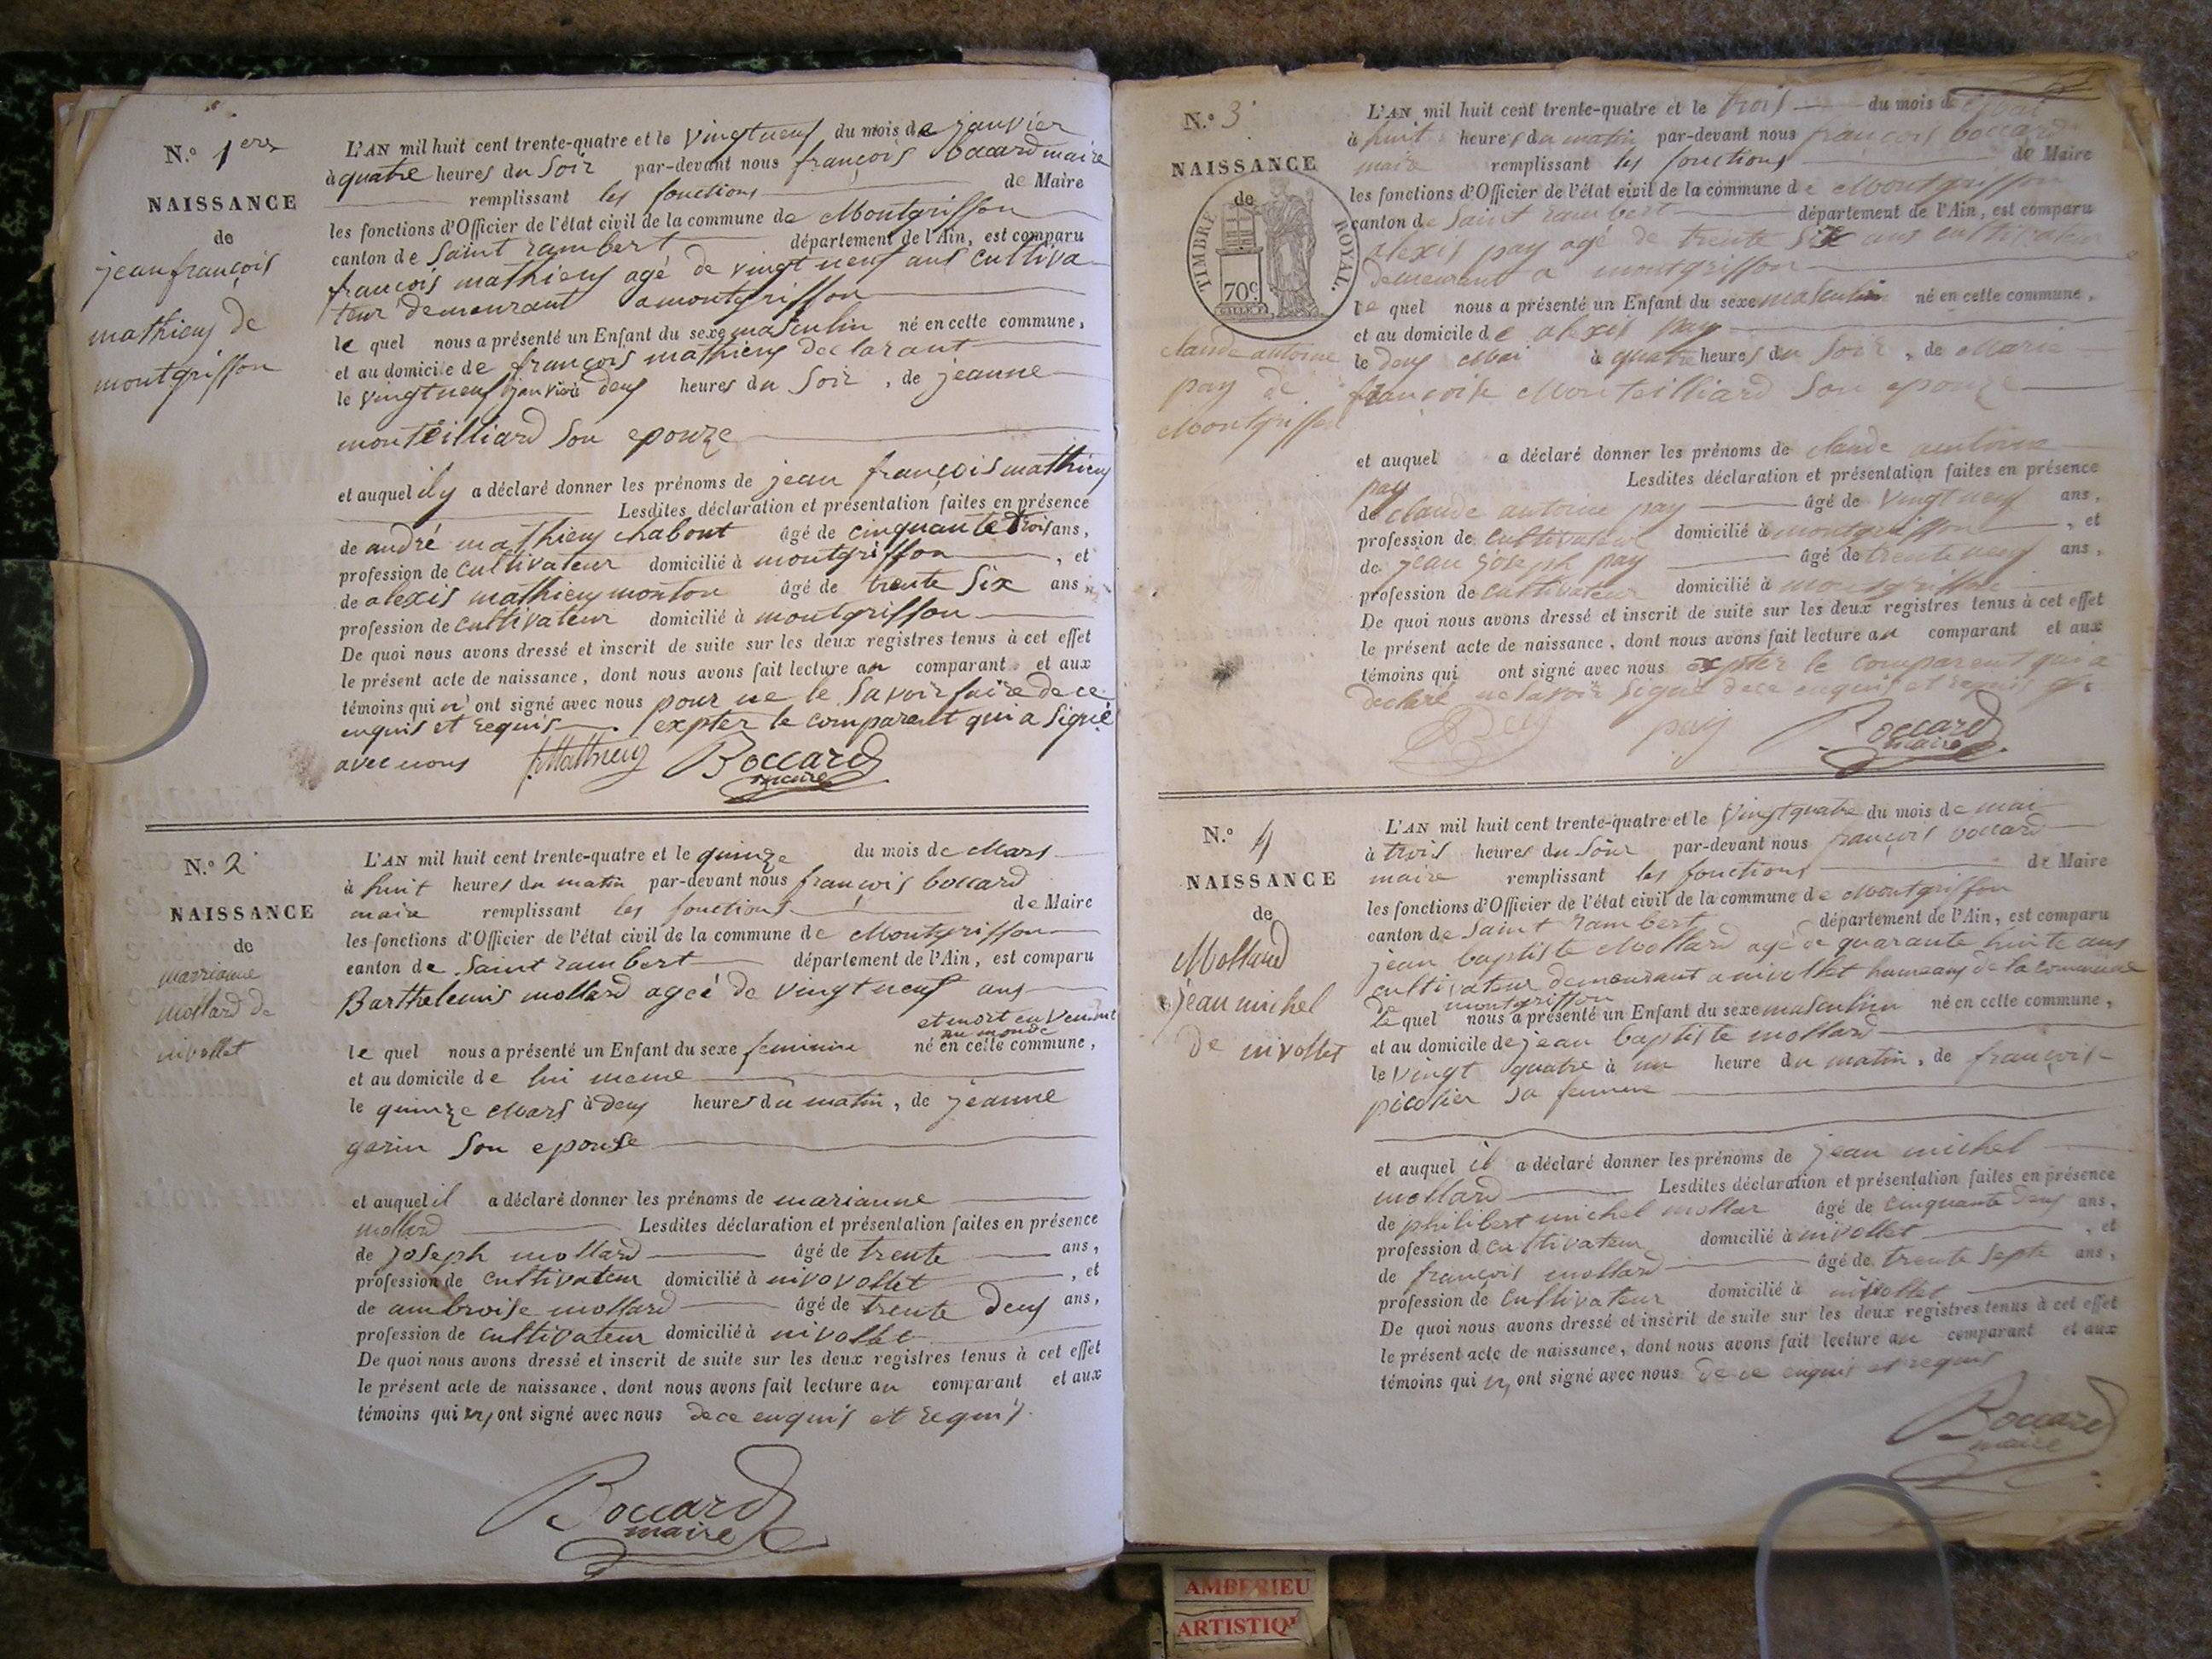 N.º 1er
NAISSANCE
de
jean françois
mathieu de
montgriffon
L'AN mil huit cent trente-quatre et le vingt neuf du mois de janvier
à quatre heures du soir par-devant nous françois boccard maire
remplissant les fonctions de Maire
les fonctions d'Officier de l'état civil de la commune de Montgriffon
canton de Saint rambert département de l'Ain, est comparu
françois mathieu agé de vingt neuf ans cultiva
teur demeurant a montgriffon
le quel nous a présenté un Enfant du sexe masculin né en cette commune,
et au domicile de françois mathieu declarant
le vingt neuf janvier à deux heures du soir, de jeanne
monteilliard son epouze
et auquel il y a déclaré donner les prénoms de jean françois mathieu
Lesdites déclaration et présentation faites en présence
de andré mathieu chabout âgé de cinquante trois ans,
profession de cultivateur domicilié à montgriffon, et
de alexis mathieu monton âgé de trente six ans
profession de cultivateur domicilié à montgriffon
De quoi nous avons dressé et inscrit de suite sur les deux registres tenus à cet effet
le présent acte de naissance, dont nous avons fait lecture au comparant et aux
témoins qui n'ont signé avec nous pour ne le savoir faire de ce
enquis et requis. expter le comparant qui a signé
avec nous Mathieu Boccard
maire
N.º 2
NAISSANCE
de
marianne
mollard de
nivollet
L'AN mil huit cent trente-quatre et le quinze du mois de Mars
à huit heures du matin par-devant nous françois boccard
maire remplissant les fonctions de Maire
les fonctions d'Officier de l'état civil de la commune de Montgriffon
canton de Saint rambert département de l'Ain, est comparu
Barthelemis mollard ageé de vingt neuf ans
et mort en venant
au monde
le quel nous a présenté un Enfant du sexe feminine né en cette commune,
et au domicile de lui meme
le quinze Mars à deux heures du matin, de jeanne
garin son epouse
et auquel il a déclaré donner les prénoms de marianne
mollard Lesdites déclaration et présentation faites en présence
de joseph mollard âgé de trente ans,
profession de cultivateur domicilié à nivovollet, et
de ambroise mollard âgé de trente deux ans,
profession de cultivateur domicilié à nivollet
De quoi nous avons dressé et inscrit de suite sur les deux registres tenus à cet effet
le présent acte de naissance, dont nous avons fait lecture au comparant et aux
témoins qui ny ont signé avec nous de ce enquis et requis.
Boccard
maire
N.º 3
NAISSANCE
de
TIMBRE ROYAL.
70c
claude antoine
pay de
Montgriffon
L'AN mil huit cent trente-quatre et le trois du mois de mai
à huit heures du matin par-devant nous françois boccard
maire remplissant les fonctions de Maire
les fonctions d'Officier de l'état civil de la commune de Montgriffon
canton de Saint rambert département de l'Ain, est comparu
alexis pay agé de trente six ans cultivateur
demeurant a montgriffon
le quel nous a présenté un Enfant du sexe masculin né en cette commune,
et au domicile de alexis pay
le deux Mai à quatre heures du soir, de Marie
françoise Monteilliard son epouze
et auquel a déclaré donner les prénoms de claude antoine
pay Lesdites déclaration et présentation faites en présence
de claude antoine pay âgé de vingt neuf ans,
profession de cultivateur domicilié à montgriffon, et
de jean joseph pay âgé de trente neuf ans,
profession de cultivateur domicilié à montgriffon
De quoi nous avons dressé et inscrit de suite sur les deux registres tenus à cet effet
le présent acte de naissance, dont nous avons fait lecture au comparant et aux
témoins qui ont signé avec nous expter le comparent qui a
declaré ne savoir signé de ce enquis et requis
pay Boccard
maire
N.º 4
NAISSANCE
de
Mollard
jean michel
de nivollet
L'AN mil huit cent trente-quatre et le vingt quatre du mois de mai
à trois heures du soir par-devant nous françois boccard
maire remplissant les fonctions de Maire
les fonctions d'Officier de l'état civil de la commune de Montgriffon
canton de Saint rambert département de l'Ain, est comparu
jean baptiste Mollard agé de quarante huite ans
cultivateur demeurant a nivollet hameaux de la commune
de montgriffon
le quel nous a présenté un Enfant du sexe masculin né en cette commune,
et au domicile de jean baptiste mollard
le vingt quatre à un heure du matin, de françoise
picotier sa femme
et auquel il a déclaré donner les prénoms de jean michel
mollard Lesdites déclaration et présentation faites en présence
de philibert michel mollar âgé de cinquante deux ans,
profession d cultivateur domicilié à nivollet, et
de françois mollard âgé de trente septe ans,
profession de cultivateur domicilié à nivollet
De quoi nous avons dressé et inscrit de suite sur les deux registres tenus à cet effet
le présent acte de naissance, dont nous avons fait lecture au comparant et aux
témoins qui ny ont signé avec nous de ce enquis et requis
Boccard
maire
AMBERIEU
ARTISTIQU